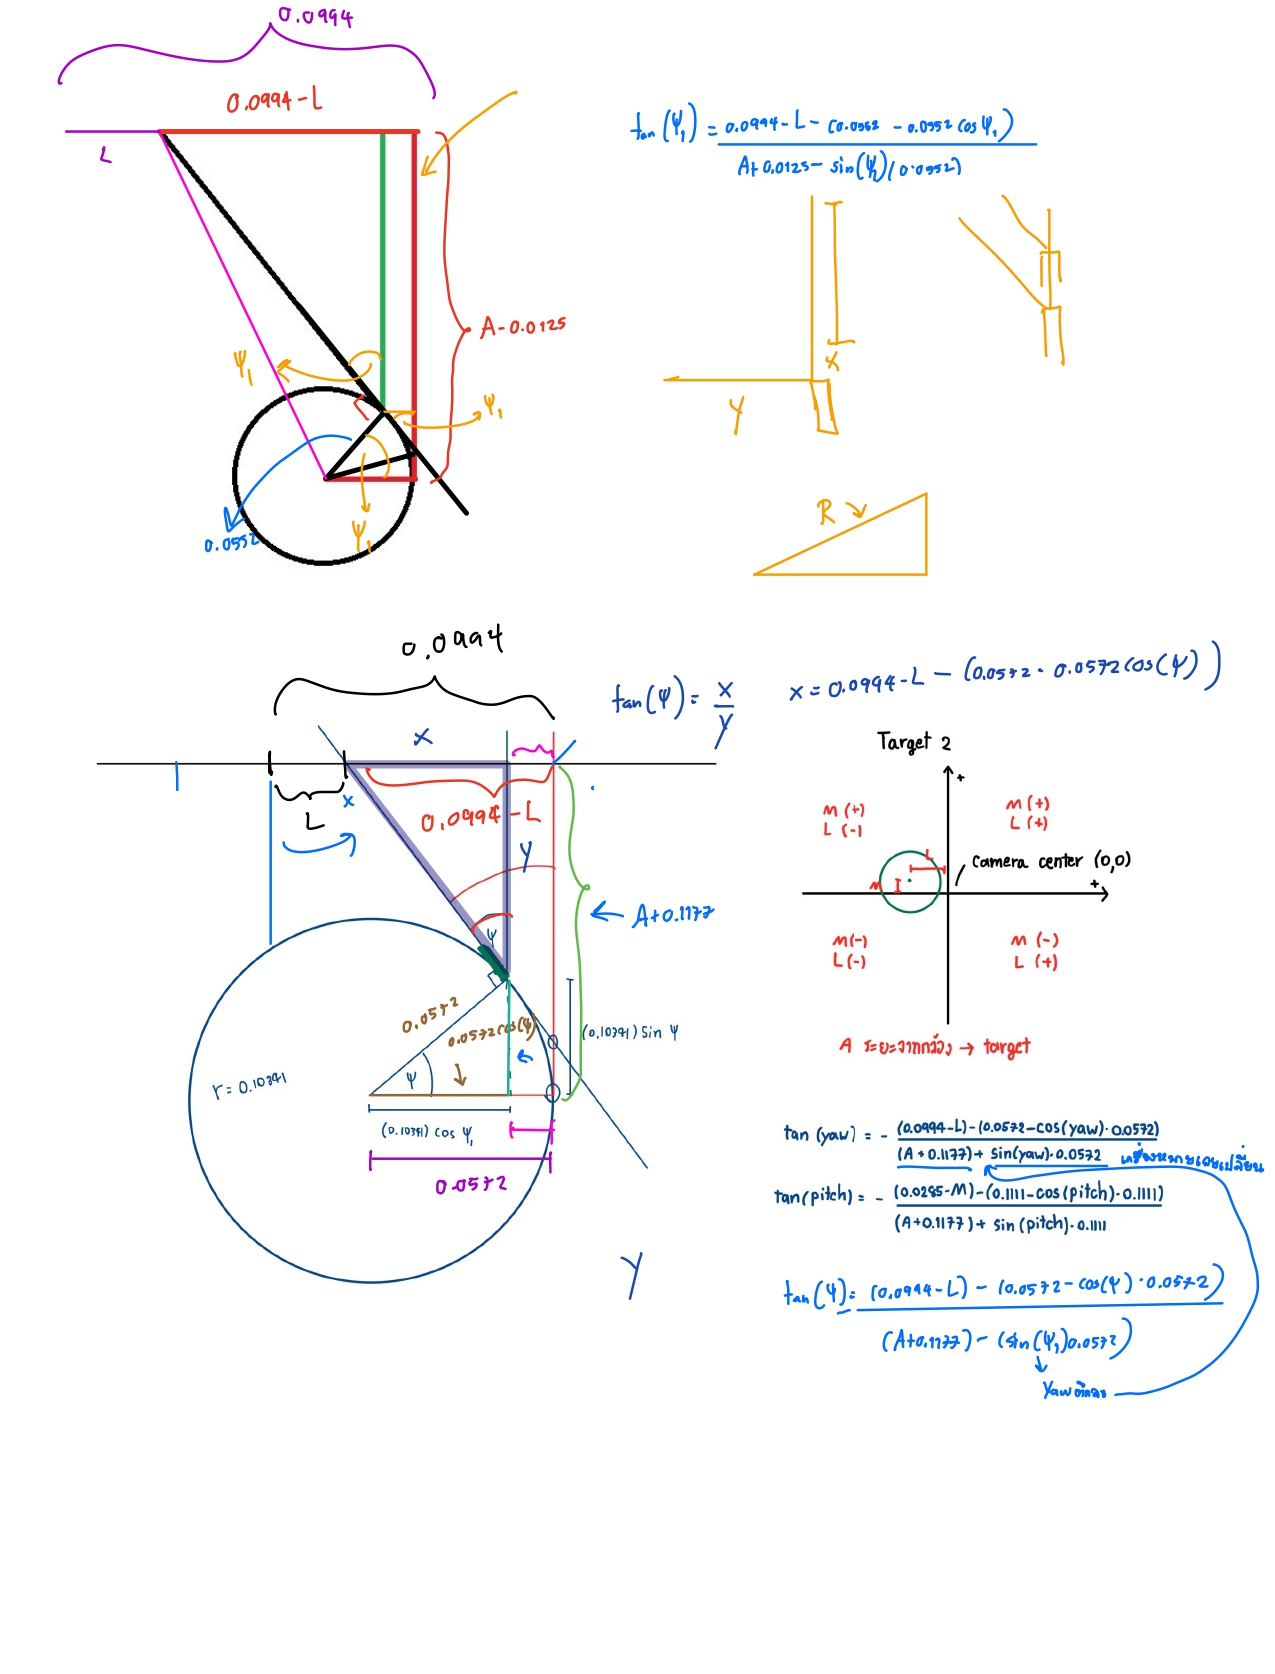 0.0994
0.0994-L
L
A-0.0125
ψ₁
ψ₁
ψ₁
0.0552
tan(ψ₁) = 0.0994-L-(0.0552 - 0.0552 cos ψ₁)
A+0.0125 - sin(ψ₁)(0.0552)
x
y
R
0.0994
tan(ψ) = x
y
x = 0.0994-L-(0.0572 - 0.0572 cos(ψ))
x
L
x
0.0994-L
y
ψ
A+0.1177
0.0572
0.0572cos(ψ)
ψ
(0.10391) sin ψ
r = 0.10391
(0.10391) cos ψ₁
0.0572
y
Target 2
+
M (+)
L (-)
M (+)
L (+)
L
M
Camera center (0,0)
+
M (-)
L (-)
M (-)
L (+)
A ระยะจากกล้อง → target
tan (yaw) = - (0.0994-L)-(0.0572-cos(yaw)·0.0572)
(A+0.1177)+ sin(yaw)·0.0572
เครื่องหมายเลยเปลี่ยน
tan(pitch) = - (0.0285-M)-(0.1111-cos(pitch)·0.1111)
(A+0.1177)+ sin(pitch)·0.1111
tan(ψ) = (0.0994-L) - (0.0572-cos(ψ)·0.0572)
(A+0.1177) - (sin(ψ₁)0.0572)
Yaw